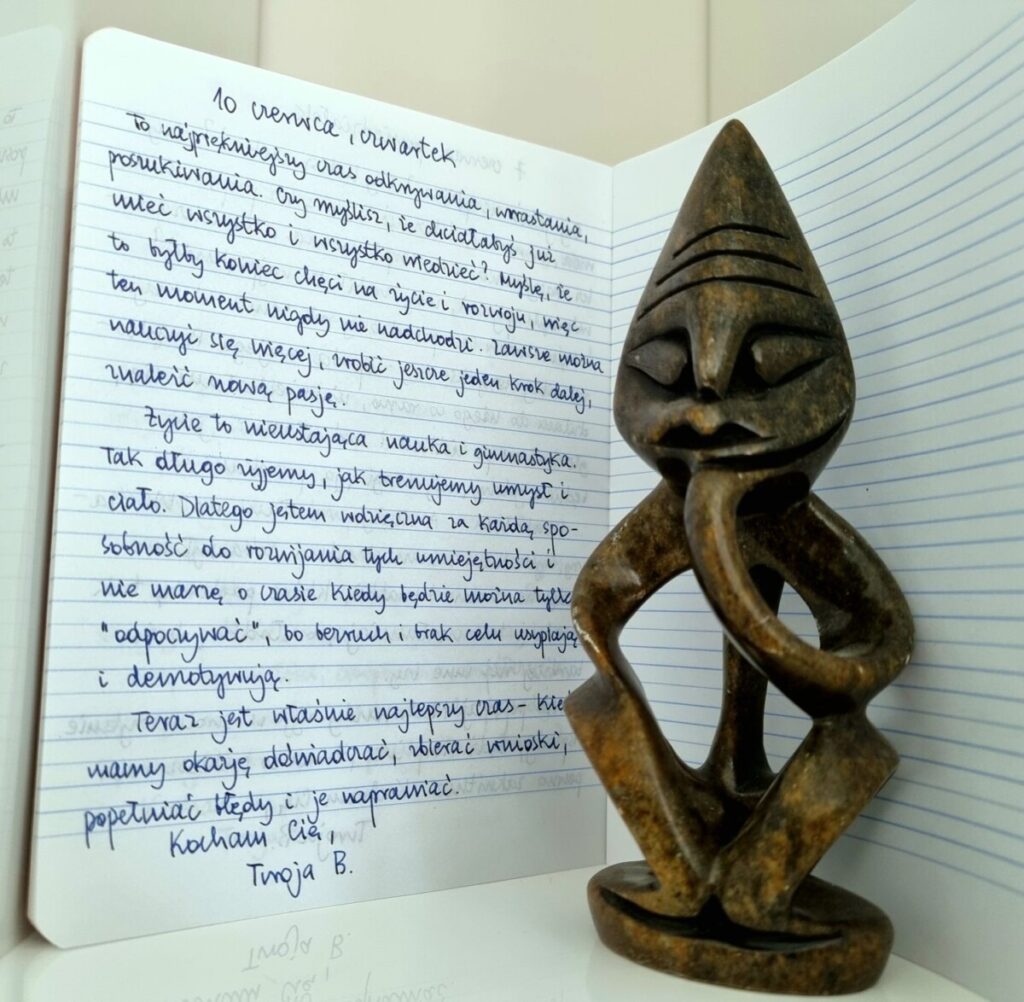 10 czerwca, czwartek
To najpiękniejszy czas odkrywania, wzrastania,
poszukiwania. Czy myślisz, że chciałabyś już
mieć wszystko i wszystko wiedzieć? Myślę, że
to byłby koniec chęci na życie i rozwoju, więc
ten moment nigdy nie nadchodzi. Zawsze można
nauczyć się więcej, zrobić jeszcze jeden krok dalej,
znaleźć nową pasję.
Życie to nieustająca nauka i gimnastyka.
Tak długo żyjemy, jak trenujemy umysł i
ciało. Dlatego jestem wdzięczna za każdą spo-
sobność do rozwijania tych umiejętności i
nie marzę o czasie kiedy będzie można tylko
"odpoczywać", bo bezruch i brak celu usypiają
i demotywują.
Teraz jest właśnie najlepszy czas -
mamy okazję doświadczać, zbierać wnioski,
popełniać błędy i je naprawiać.
Kocham Cię,
Twoja B.